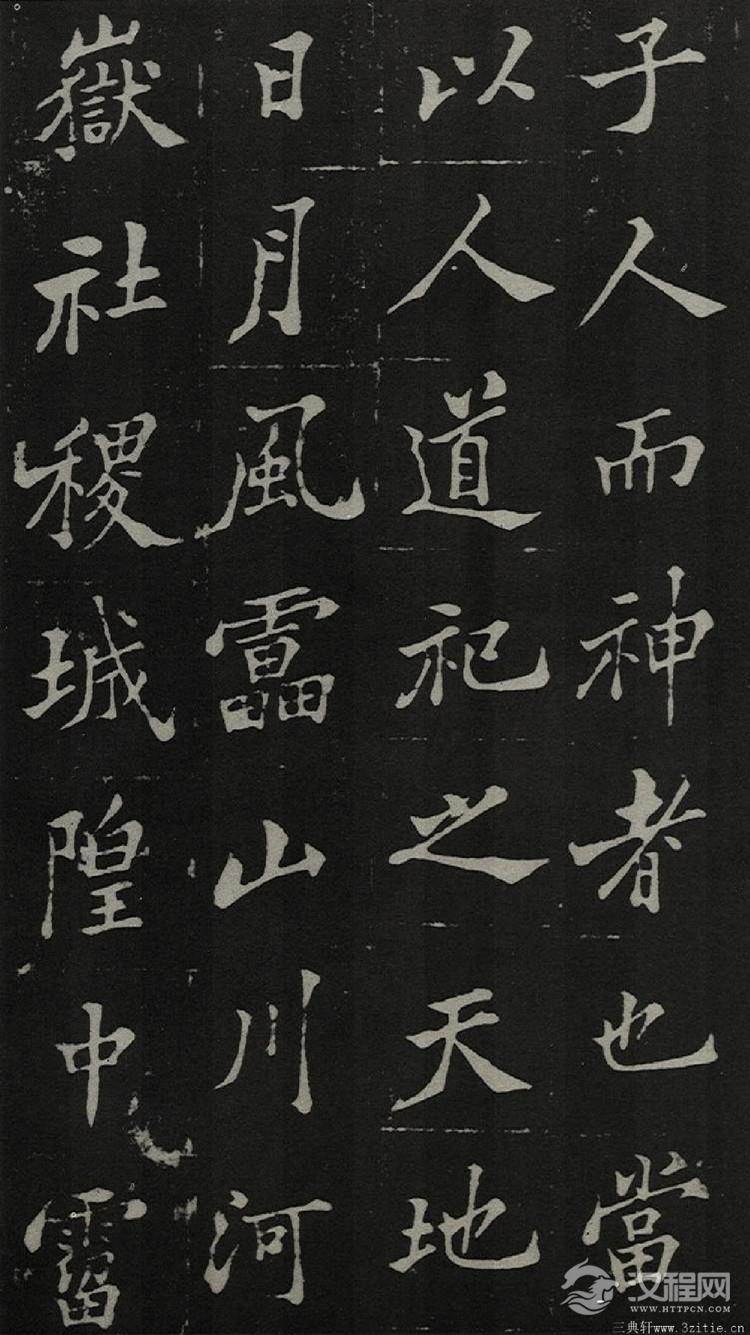 子人而神者也當
以人道祀之天地
日月風靁山川河
嶽社稷城隍中霤
汉程网
WWW.HTTPCN.COM
三典轩www.3zitie.cn